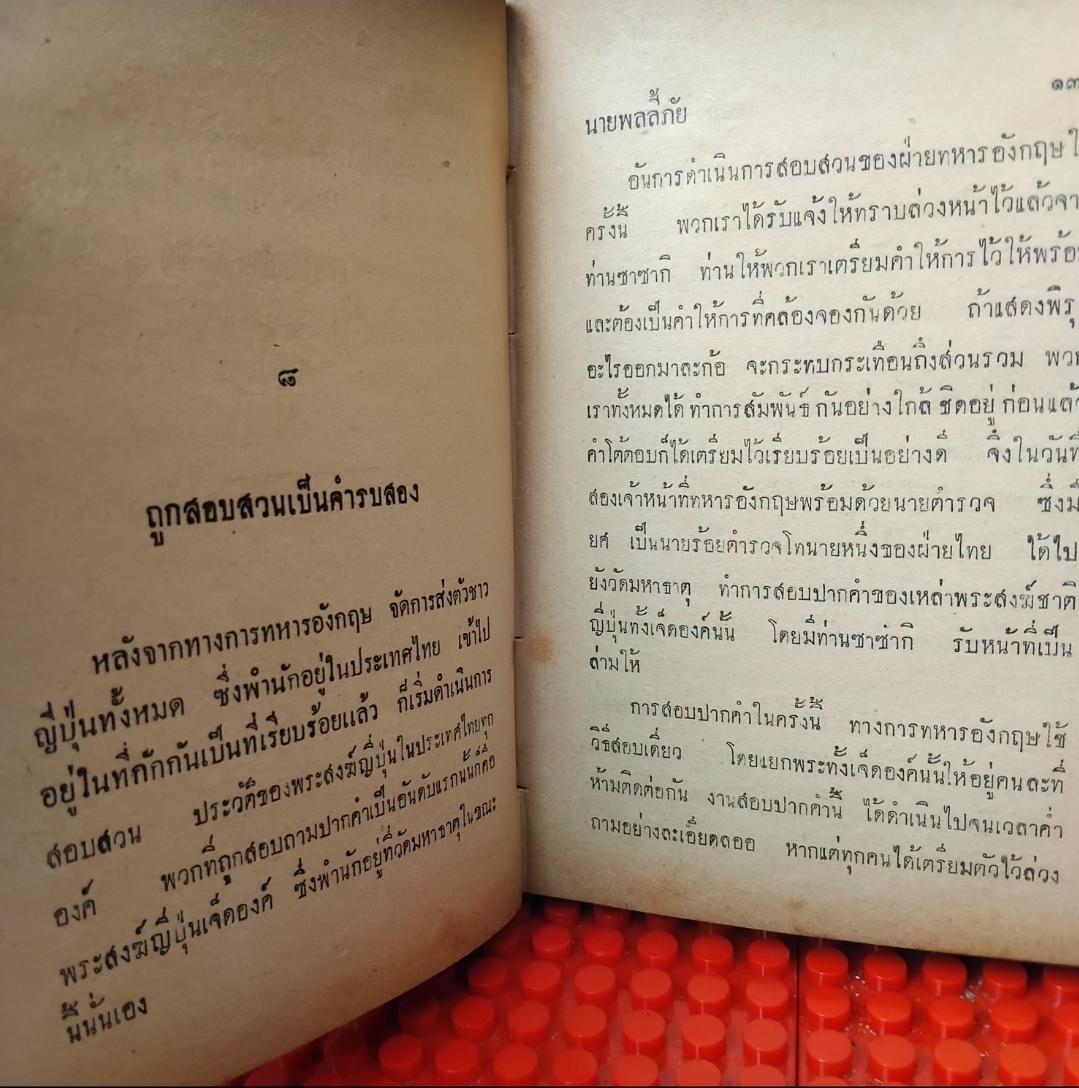 ๘
ถูกสอบสวนเป็นคำรบสอง
หลังจากทางการทหารอังกฤษ จัดการส่งตัวชาว
ญี่ปุ่นทั้งหมด ซึ่งพำนักอยู่ในประเทศไทย เข้าไป
อยู่ในที่กักกันเป็นที่เรียบร้อยแล้ว ก็เริ่มดำเนินการ
สอบสวน ประวัติของพระสงฆ์ญี่ปุ่นในประเทศไทยทุก
องค์ พวกที่ถูกสอบถามปากคำเป็นอันดับแรกนั้นก็คือ
พระสงฆ์ญี่ปุ่นเจ็ดองค์ ซึ่งพำนักอยู่ที่วัดมหาธาตุในขณะ
นี้นั่นเอง
๑๓
นายพลลี้ภัย
อันการดำเนินการสอบสวนของฝ่ายทหารอังกฤษใ
ครั้งนี้ พวกเราได้รับแจ้งให้ทราบล่วงหน้าไว้แล้วจา
ท่านซาซากิ ท่านให้พวกเราเตรียมคำให้การไว้ให้พร้อ
และต้องเป็นคำให้การที่คล้องจองกันด้วย ถ้าแสดงพิรุ
อะไรออกมาละก้อ จะกระทบกระเทือนถึงส่วนรวม พวก
เราทั้งหมดได้ทำการสัมพันธ์กันอย่างใกล้ชิดอยู่ก่อนแล้ว
คำโต้ตอบก็ได้เตรียมไว้เรียบร้อยเป็นอย่างดี จึงในวันที่
สองเจ้าหน้าที่ทหารอังกฤษพร้อมด้วยนายตำรวจ ซึ่งมี
ยศ เป็นนายร้อยตำรวจโทนายหนึ่งของฝ่ายไทย ได้ไป
ยังวัดมหาธาตุ ทำการสอบปากคำของเหล่าพระสงฆ์ชาติ
ญี่ปุ่นทั้งเจ็ดองค์นั้น โดยมีท่านซาซ่ากิ รับหน้าที่เป็น
ล่ามให้
การสอบปากคำในครั้งนี้ ทางการทหารอังกฤษใช้
วิธีสอบเดี่ยว โดยแยกพระทั้งเจ็ดองค์นั้นให้อยู่คนละที่
ห้ามติดต่อกัน งานสอบปากคำนี้ ได้ดำเนินไปจนเวลาค่ำ
ถามอย่างละเอียดลออ หากแต่ทุกคนได้เตรียมตัวไว้ล่วง